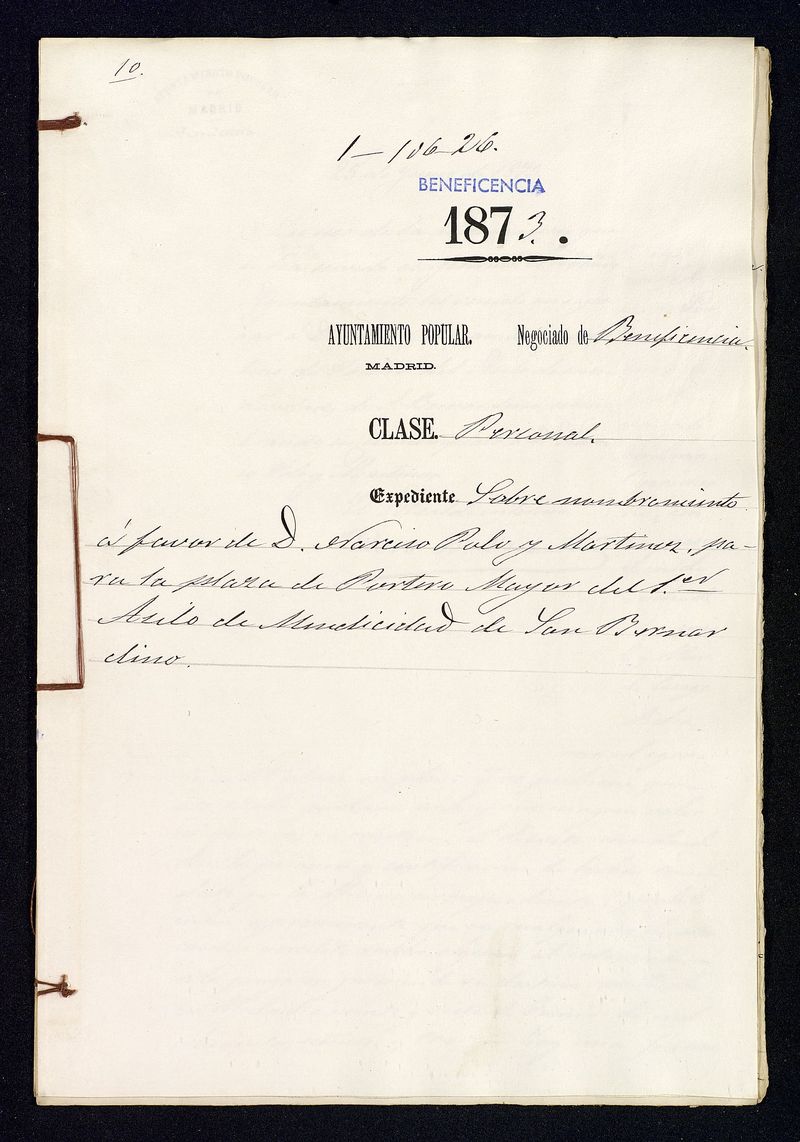 10.
1-106-26.
BENEFICENCIA
1873..
AYUNTAMIENTO POPULAR. Negociado de Beneficencia.
MADRID.
CLASE. Personal.
Expediente Sobre nombramiento
á favor de D. Narciso Polo y Martinez, pa-
ra la plaza de Portero Mayor del 1.er
Asilo de Mendicidad de San Bernar
dino.